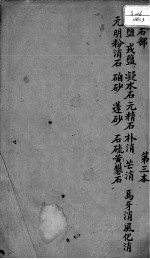 石部
第三本
盐 戎盐 凝水石 元精石 朴消 芒消 馬牙消 風化消
元明粉 消石 硇砂 蓬砂 石硫黄 礬石